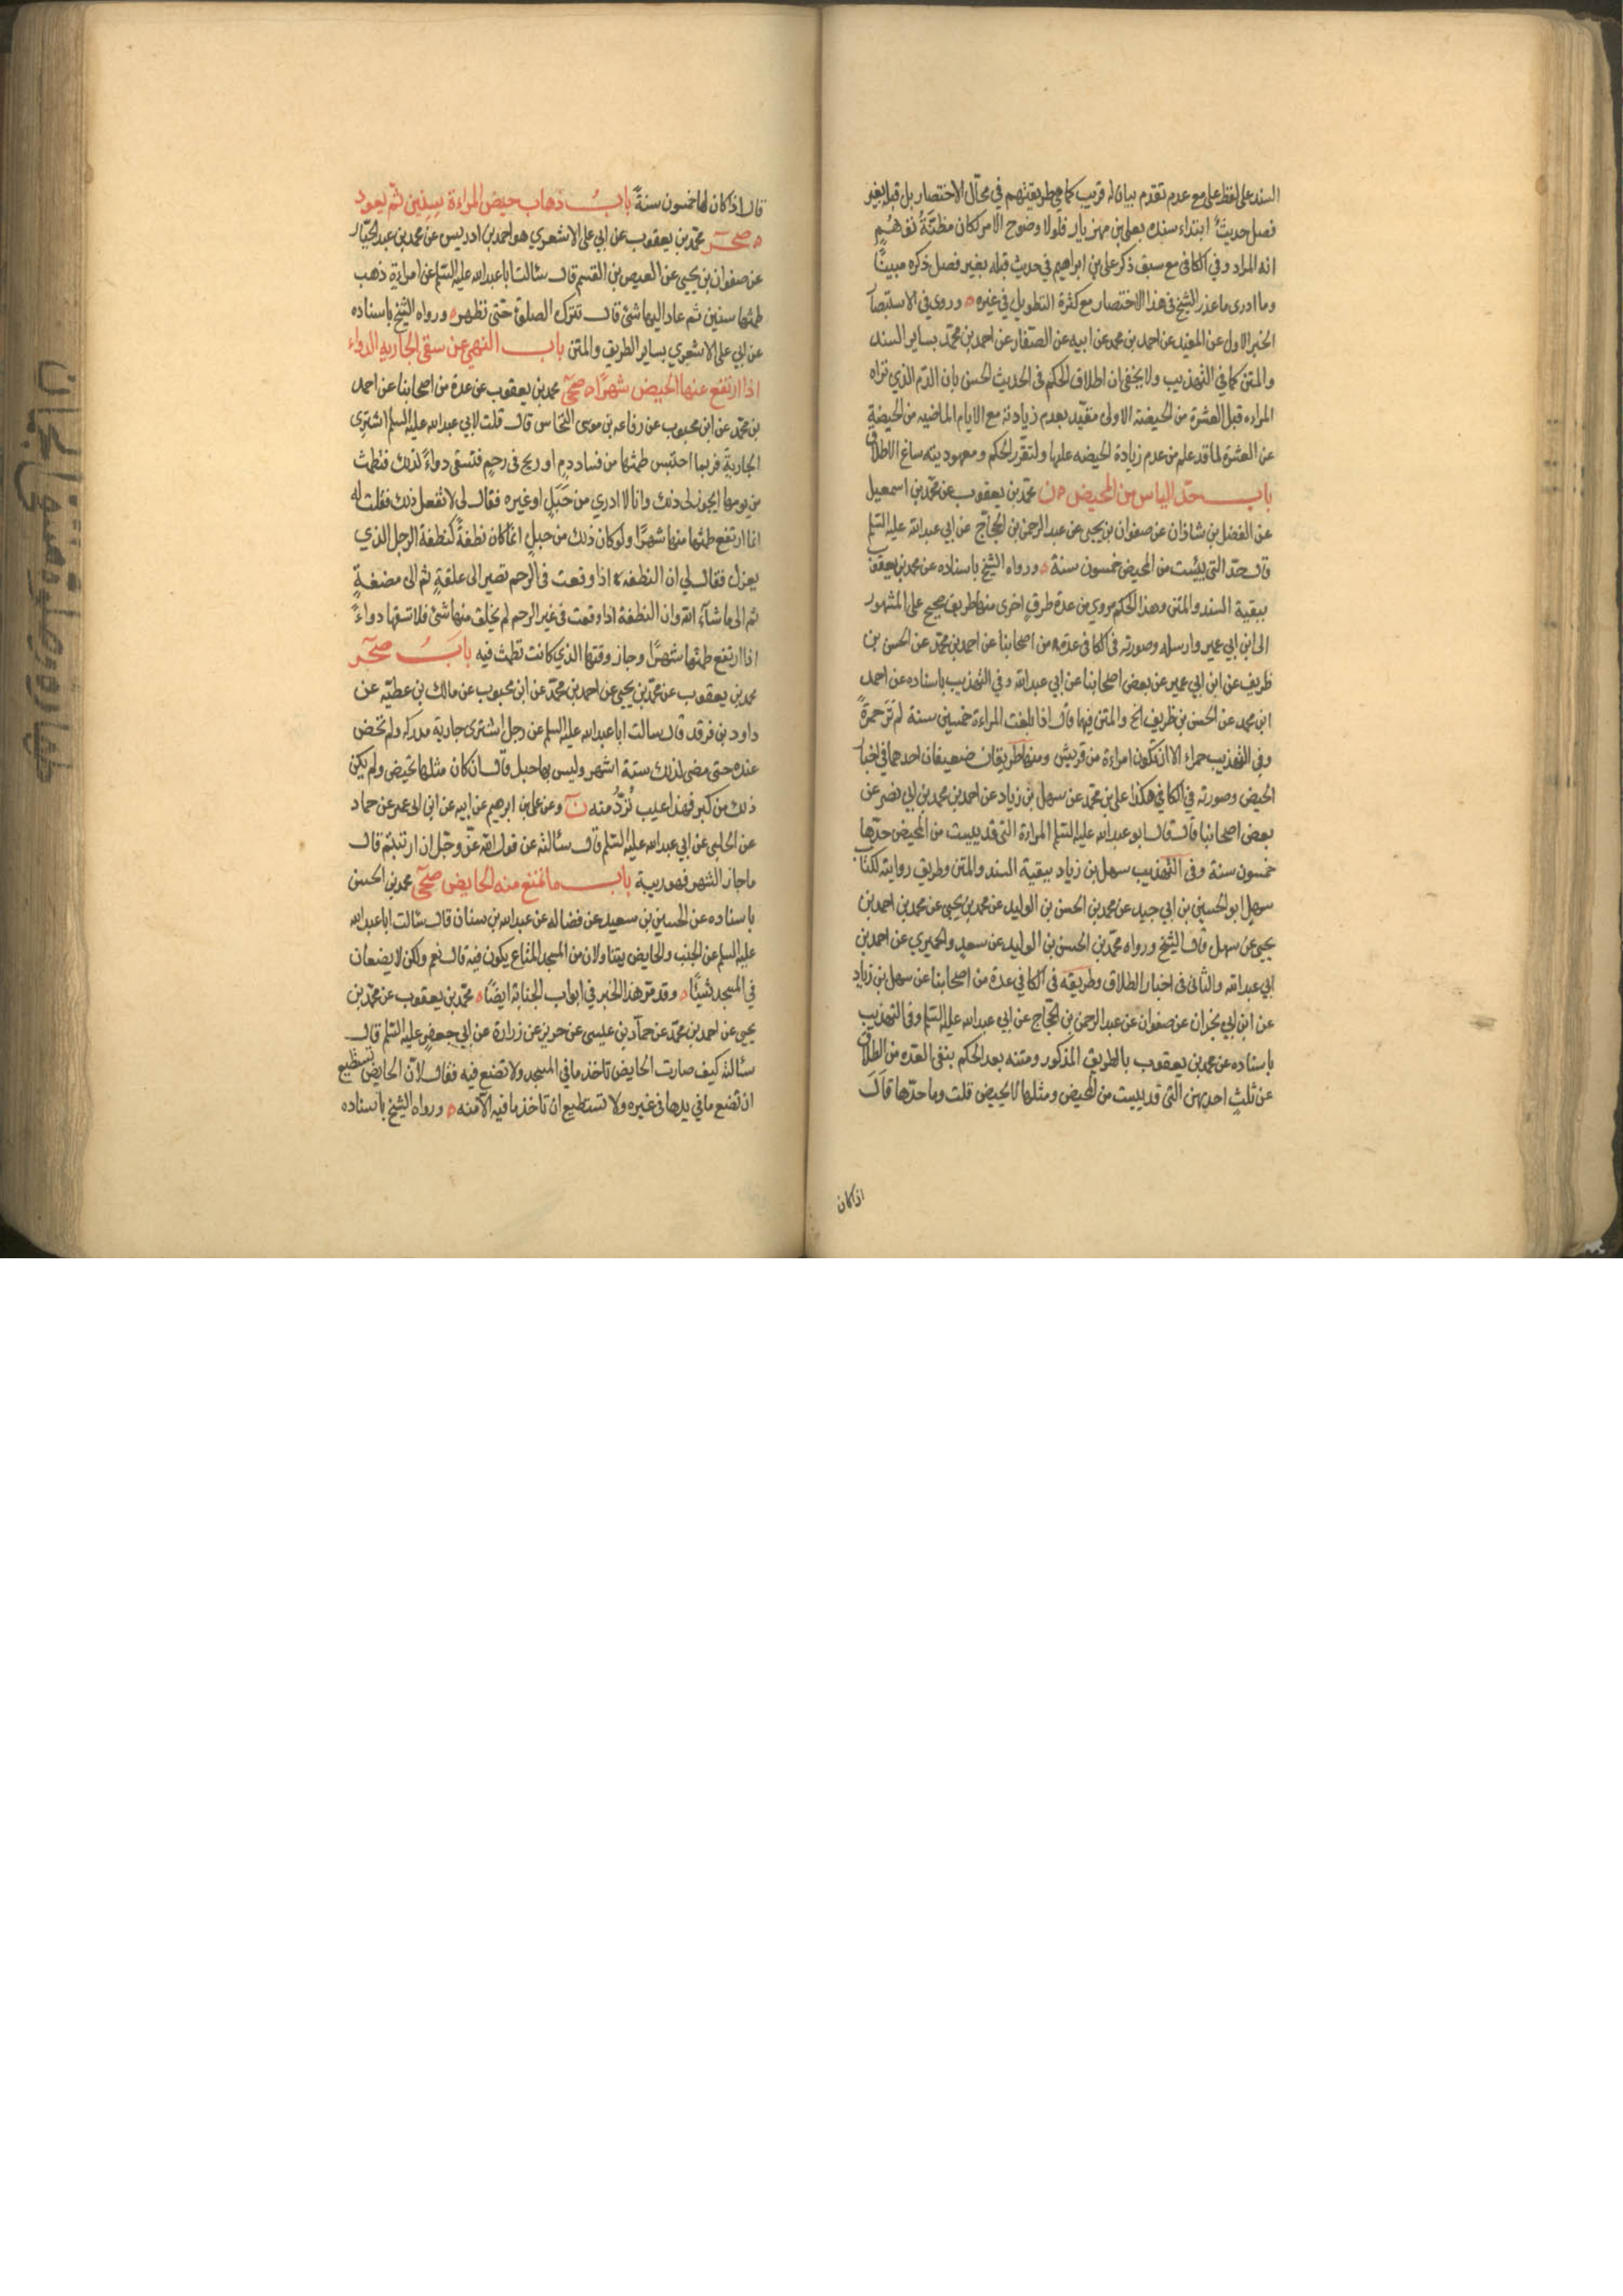 السند على لفظ على مع عدم تقدم بيان له قريب كما هي طريقتهم في محال الاختصار بل قبله بغير
فصل حديث ابتداء سنده بعلي بن مهزيار فلولا وضوح الامر لكان مظنة توهم
انه المراد وفي الكافي مع سبق ذكر علي بن ابراهيم في حديث قبله بغير فصل ذكره مبينا
وما ادري ما عذر الشيخ في هذا الاختصار مع كثرة التطويل في غيره ٥ وروى في الاستبصار
الخبر الاول عن المفيد عن احمد بن محمد عن ابيه عن الصفار عن احمد بن محمد بساير السند
والمتن كما في التهذيب ولا يخفى ان اطلاق الحكم في الحديث الحسن بان الدم الذي تراه
المراه قبل العشرة من الحيضة الاولى مقيد بعدم زيادته مع الايام الماضيه من الحيضة
عن العشرة لما قد علم من عدم زيادة الحيضه عليها ولتقرر الحكم ومعهوديته ساغ الاطلاق
باب حد الياس من المحيض ٥ ن محمد بن يعقوب عن محمد بن اسمعيل
عن الفضل بن شاذان عن صفوان بن يحيى عن عبد الرحمن بن الحجاج عن ابي عبد الله عليه السلم
قال حد التي يئست من المحيض خمسون سنة ٥ ورواه الشيخ باسناده عن محمد بن يعقوب
ببقية السند والمتن وهذا الحكم مروي من عدة طرق اخرى منها طريق صحيح على المشهور
الى ابن ابي عمير وارسله وصورته في الكافي عدة من اصحابنا عن احمد بن محمد عن الحسن بن
ظريف عن ابن ابي عمير عن بعض اصحابنا عن ابي عبد الله وفي التهذيب باسناده عن احمد
ابن محمد عن الحسن بن ظريف الخ والمتن فيها قال اذا بلغت المراءة خمسين سنة لم تر حمرة
وفي التهذيب حمراء الا ان تكون امراءة من قريش ومنها طريقان ضعيفان احدهما في اخبار
الحيض وصورته في الكافي هكذا علي بن محمد عن سهل بن زياد عن احمد بن محمد بن ابي نصر عن
بعض اصحابنا قال قال ابو عبد الله عليه السلم المراءة التي قد يئست من المحيض حدها
خمسون سنة وفي التهذيب سهل بن زياد ببقية السند والمتن وطريق روايته لكتاب
سهل ابو الحسين بن ابي جيد عن محمد بن الحسن بن الوليد عن محمد بن يحيى عن محمد بن احمد بن
يحيى عن سهل قال الشيخ ورواه محمد بن الحسن بن الوليد عن سعد والحميري عن احمد بن
ابي عبد الله والثاني في اخبار الطلاق وطريقه في الكافي عدة من اصحابنا عن سهل بن زياد
عن ابن ابي نجران عن صفوان عن عبد الرحمن بن الحجاج عن ابي عبد الله عليه السلم وفي التهذيب
باسناده عن محمد بن يعقوب بالطريق المذكور ومتنه بعد الحكم بنفي العده من الطلاق
عن ثلث احديهن التي قد يئست من المحيض ومثلها لا تحيض قلت وما حدها قال
اذا كان
قال اذا كان لها خمسون سنة باب ذهاب حيض المراءة سنين ثم يعود
٥ صحر محمد بن يعقوب عن ابي علي الاشعري هو احمد بن ادريس عن محمد بن عبد الجبار
عن صفوان بن يحيى عن العيص بن القسم قال سئالت ابا عبد الله عليه السلم عن امراءة ذهب
طمثها سنين ثم عاد اليها شئ قال تترك الصلوة حتى تطهر ٥ ورواه الشيخ باسناده
عن ابي علي الاشعري بساير الطريق والمتن باب النهي عن سقي الجاريه الدواء
اذا ارتفع عنها الحيض شهرا ٥ صحي محمد بن يعقوب عن عدة من اصحابنا عن احمد
بن محمد عن ابن محبوب عن رفاعه بن موسى النخاس قال قلت لابي عبد الله عليه السلم اشتري
الجارية فربما احتبس طمثها من فساد دم او ريح في رحم فتسقى دواء لذلك فتطمث
من يومها ايجوز لي ذلك وانا لا ادري من حبل او غيره فقال لي لا تفعل ذلك فقلت له
انما ارتفع طمثها منها شهرا ولو كان ذلك من حبل انما كان نطفة كنطفة الرجل الذي
يعزل فقال لي ان النطفه اذا وقعت في الرحم تصير الى علقة ثم الى مضغة
ثم الى ما شآء الله وان النطفة اذا وقعت في غير الرحم لم يخلق منها شئ فلا تسقها دواء
اذا ارتفع طمثها شهرا وجاز وقتها الذي كانت تطمث فيه باب صحر
محمد بن يعقوب عن محمد بن يحيى عن احمد بن محمد عن ابن محبوب عن مالك بن عطيه عن
داود بن فرقد قال سالت ابا عبد الله عليه السلم عن رجل اشترى جاريه مدركه ولم تحض
عنده حتى مضى لذلك ستة اشهر وليس بها حبل قال ان كان مثلها تحيض ولم يكن
ذلك من كبر فهذا عيب تردّ منه ن وعن علي بن ابرهيم عن ابيه عن ابن ابي عمير عن حماد
عن الحلبي عن ابي عبد الله عليه السلم قال سئالته عن قول الله عز وجل ان ارتبتم قال
ما جاز الشهر فهو ريبة باب ما تمنع منه الحايض صحي محمد بن الحسن
باسناده عن الحسين بن سعيد عن فضاله عن عبد الله بن سنان قال سئالت ابا عبد الله
عليه السلم عن الجنب والحايض يتناولان من المسجد المتاع يكون فيه قال نعم ولكن لا يضعان
في المسجد شيئا ٥ وقد مر هذا الخبر في ابواب الجنابة ايضا ٥ محمد بن يعقوب عن محمد بن
يحيى عن احمد بن محمد عن حماد بن عيسى عن حريز عن زرارة عن ابي جعفر عليه السلم قال
سئالته كيف صارت الحايض تاخذ ما في المسجد ولا تضع فيه فقال لان الحايض تستطيع
ان تضع ما في يدها في غيره ولا تستطيع ان تاخذ ما فيه الا منه ٥ ورواه الشيخ باسناده